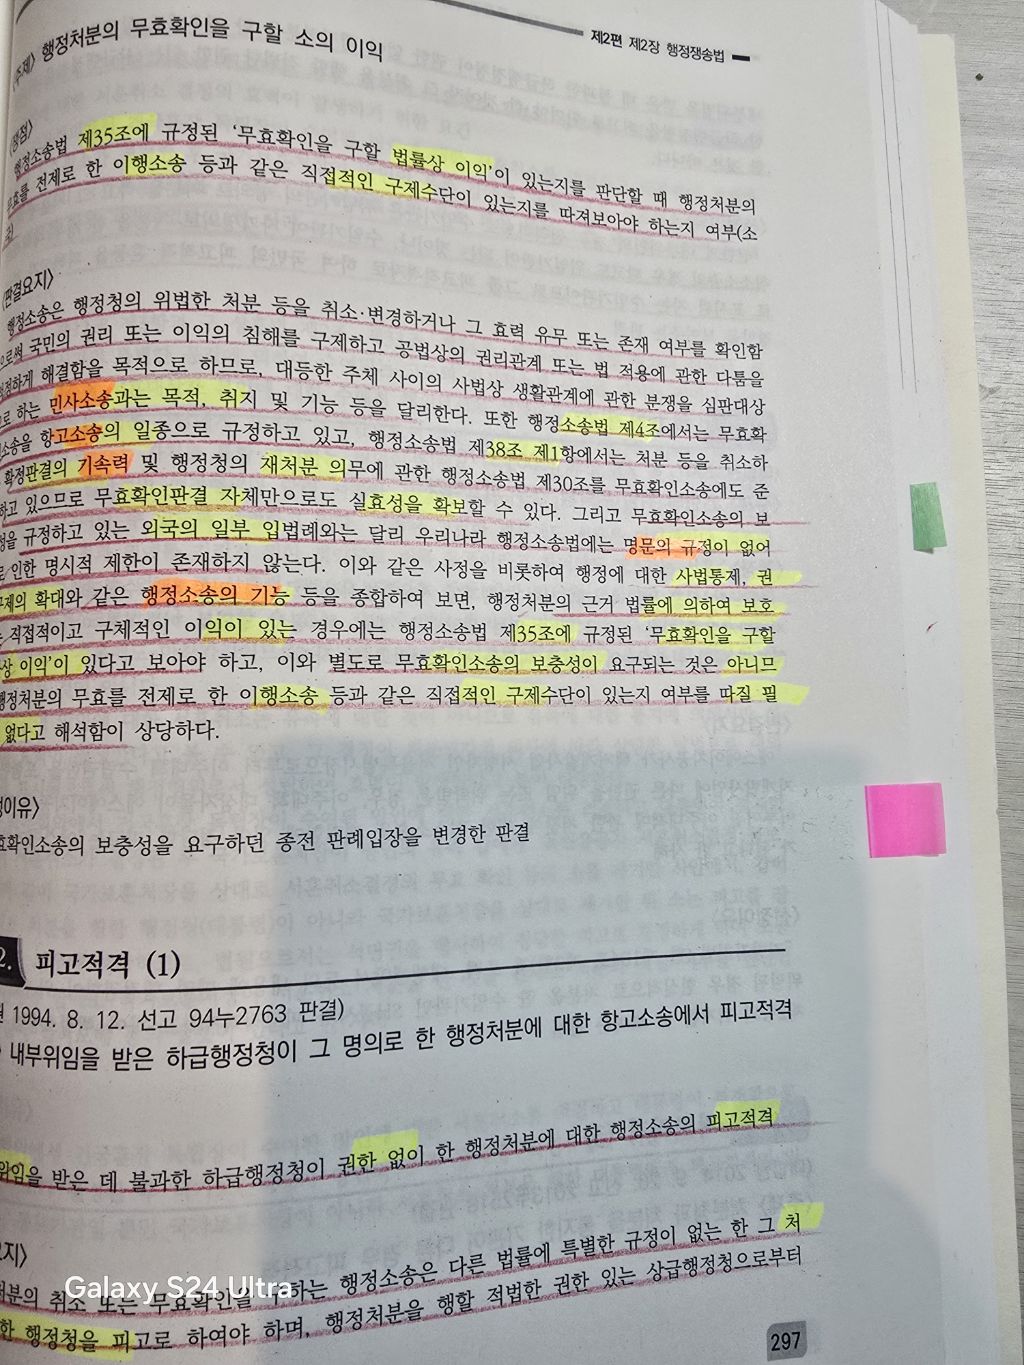 제2편 제2장 행정쟁송법
〈주제〉 행정처분의 무효확인을 구할 소의 이익
〈쟁점〉
행정소송법 제35조에 규정된 '무효확인을 구할 법률상 이익'이 있는지를 판단할 때 행정처분의
무효를 전제로 한 이행소송 등과 같은 직접적인 구제수단이 있는지를 따져보아야 하는지 여부(소
〈판결요지〉
행정소송은 행정청의 위법한 처분 등을 취소·변경하거나 그 효력 유무 또는 존재 여부를 확인함
으로써 국민의 권리 또는 이익의 침해를 구제하고 공법상의 권리관계 또는 법 적용에 관한 다툼을
적정하게 해결함을 목적으로 하므로, 대등한 주체 사이의 사법상 생활관계에 관한 분쟁을 심판대상
으로 하는 민사소송과는 목적, 취지 및 기능 등을 달리한다. 또한 행정소송법 제4조에서는 무효확
소송을 항고소송의 일종으로 규정하고 있고, 행정소송법 제38조 제1항에서는 처분 등을 취소하
확정판결의 기속력 및 행정청의 재처분 의무에 관한 행정소송법 제30조를 무효확인소송에도 준
하고 있으므로 무효확인판결 자체만으로도 실효성을 확보할 수 있다. 그리고 무효확인소송의 보
성을 규정하고 있는 외국의 일부 입법례와는 달리 우리나라 행정소송법에는 명문의 규정이 없어
로 인한 명시적 제한이 존재하지 않는다. 이와 같은 사정을 비롯하여 행정에 대한 사법통제, 권
구제의 확대와 같은 행정소송의 기능 등을 종합하여 보면, 행정처분의 근거 법률에 의하여 보호
는 직접적이고 구체적인 이익이 있는 경우에는 행정소송법 제35조에 규정된 '무효확인을 구할
상 이익'이 있다고 보아야 하고, 이와 별도로 무효확인소송의 보충성이 요구되는 것은 아니므
행정처분의 무효를 전제로 한 이행소송 등과 같은 직접적인 구제수단이 있는지 여부를 따질 필
없다고 해석함이 상당하다.
정이유〉
효확인소송의 보충성을 요구하던 종전 판례입장을 변경한 판결
2. 피고적격 (1)
원 1994. 8. 12. 선고 94누2763 판결)
내부위임을 받은 하급행정청이 그 명의로 한 행정처분에 대한 항고소송에서 피고적격
위임을 받은 데 불과한 하급행정청이 권한 없이 한 행정처분에 대한 행정소송의 피고적격
요지〉
처분의 취소 또는 무효확인을 구하는 행정소송은 다른 법률에 특별한 규정이 없는 한 그 처
한 행정청을 피고로 하여야 하며, 행정처분을 행할 적법한 권한 있는 상급행정청으로부터
Galaxy S24 Ultra
297